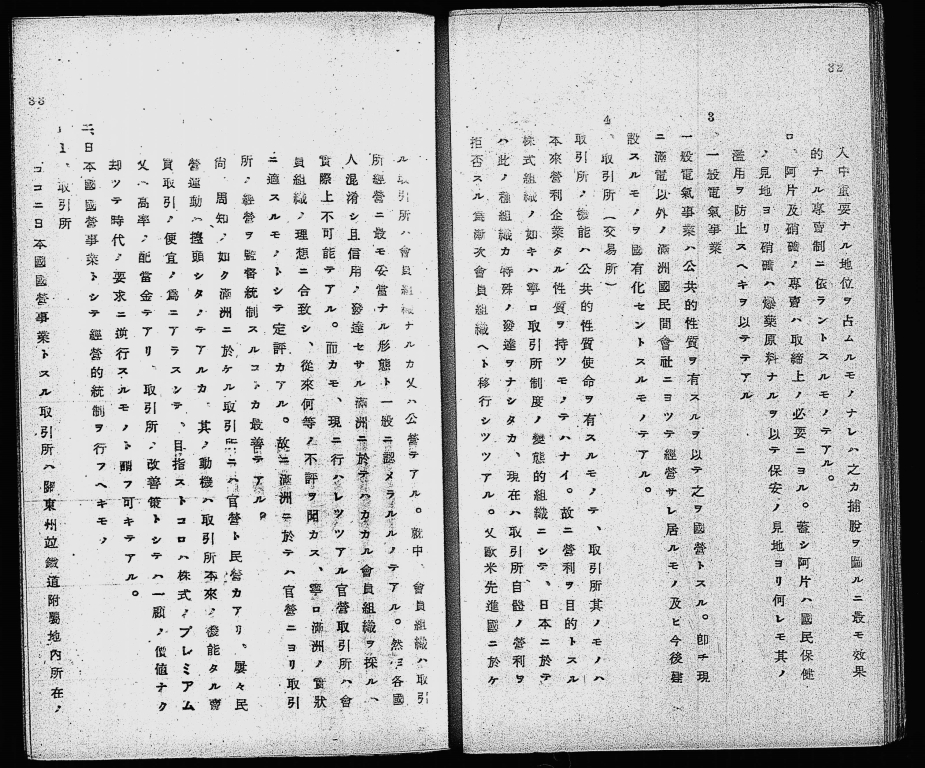 32
入中重要ナル地位ヲ占ムルモノナレハ之カ捕脫ヲ圖ルニ最モ效果
的ナル專賣制ニ依ラントスルモノテアル。
ロ、阿片及硝礦ノ專賣ハ取締上ノ必要ニヨル。蓋シ阿片ハ國民保健
ノ見地ヨリ硝礦ハ爆藥原料ナルヲ以テ保安ノ見地ヨリ何レモ其ノ
濫用ヲ防止スヘキヲ以テテアル
3、一般電氣事業
一般電氣事業ハ公共的性質ヲ有スルヲ以テ之ヲ國營トスル。卽チ現
ニ滿電以外ノ滿洲國民間會社ニヨツテ經營サレ居ルモノ及ヒ今後建
設スルモノヲ國有化セントスルモノテアル。
4、取引所（交易所）
取引所ノ機能ハ公共的性質使命ヲ有スルモノテ、取引所其ノモノハ
本來營利企業タル性質ヲ持ツモノテハナイ。故ニ營利ヲ目的トスル
株式組織ノ如キハ寧ロ取引所制度ノ變態的組織ニシテ、日本ニ於テ
ハ此ノ種組織カ特殊ノ發達ヲナシタカ、現在ハ取引所自體ノ營利ヲ
拒否スル爲漸次會員組織ヘト移行シツツアル。又歐米先進國ニ於ケ
33
ル取引所ハ會員組織ナルカ又ハ公營テアル。就中、會員組織ハ取引
所經營ニ最モ妥當ナル形態ト一般ニ認メラルルノテアル。然ヨ各國
人混淆シ且信用ノ發達セサル滿洲ニ於テハカカル會員組織ヲ採ル、
實際上不可能テアル。而カモ、現ニ行ハレツツアル官營取引所ハ會
員組織ノ理想ニ合致シ、從來何等ノ不評ヲ聞カス、寧ロ滿洲ノ實狀
ニ適スルモノトシテ定評カアル。故ニ滿洲ニ於テハ官營ニヨリ取引
所ノ經營ヲ監督統制スルコトカ最善テアル。
尙、周知ノ如ク滿洲ニ於ケル取引所ニハ官營ト民營カアリ、屢々民
營運動ハ擡頭シタノテアルカ、其ノ動機ハ取引所本來ノ機能タル賣
買取引ノ便宜ノ爲ニアラスシテ、目指ストコロハ株式ノプレミアム
又ハ高率ノ配當金テアリ、取引所ノ改善策トシテハ一顧ノ價値ナク
却ツテ時代ノ要求ニ逆行スルモノト謂フ可キテアル。
二、日本國國營事業トシテ經營的統制ヲ行フヘキモノ
1、取引所
ココニ日本國國營事業トスル取引所ハ關東州竝鐵道附屬地內所在ノ